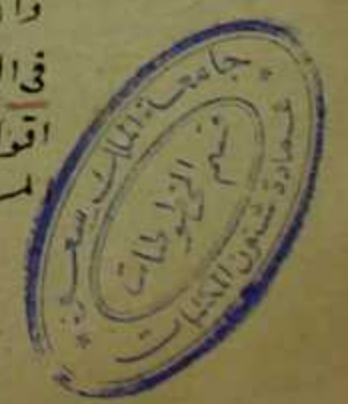 وال
فى ال
اقوا
لم
جامعة الملك سعود
قسم المخطوطات
عمادة شئون المكتبات